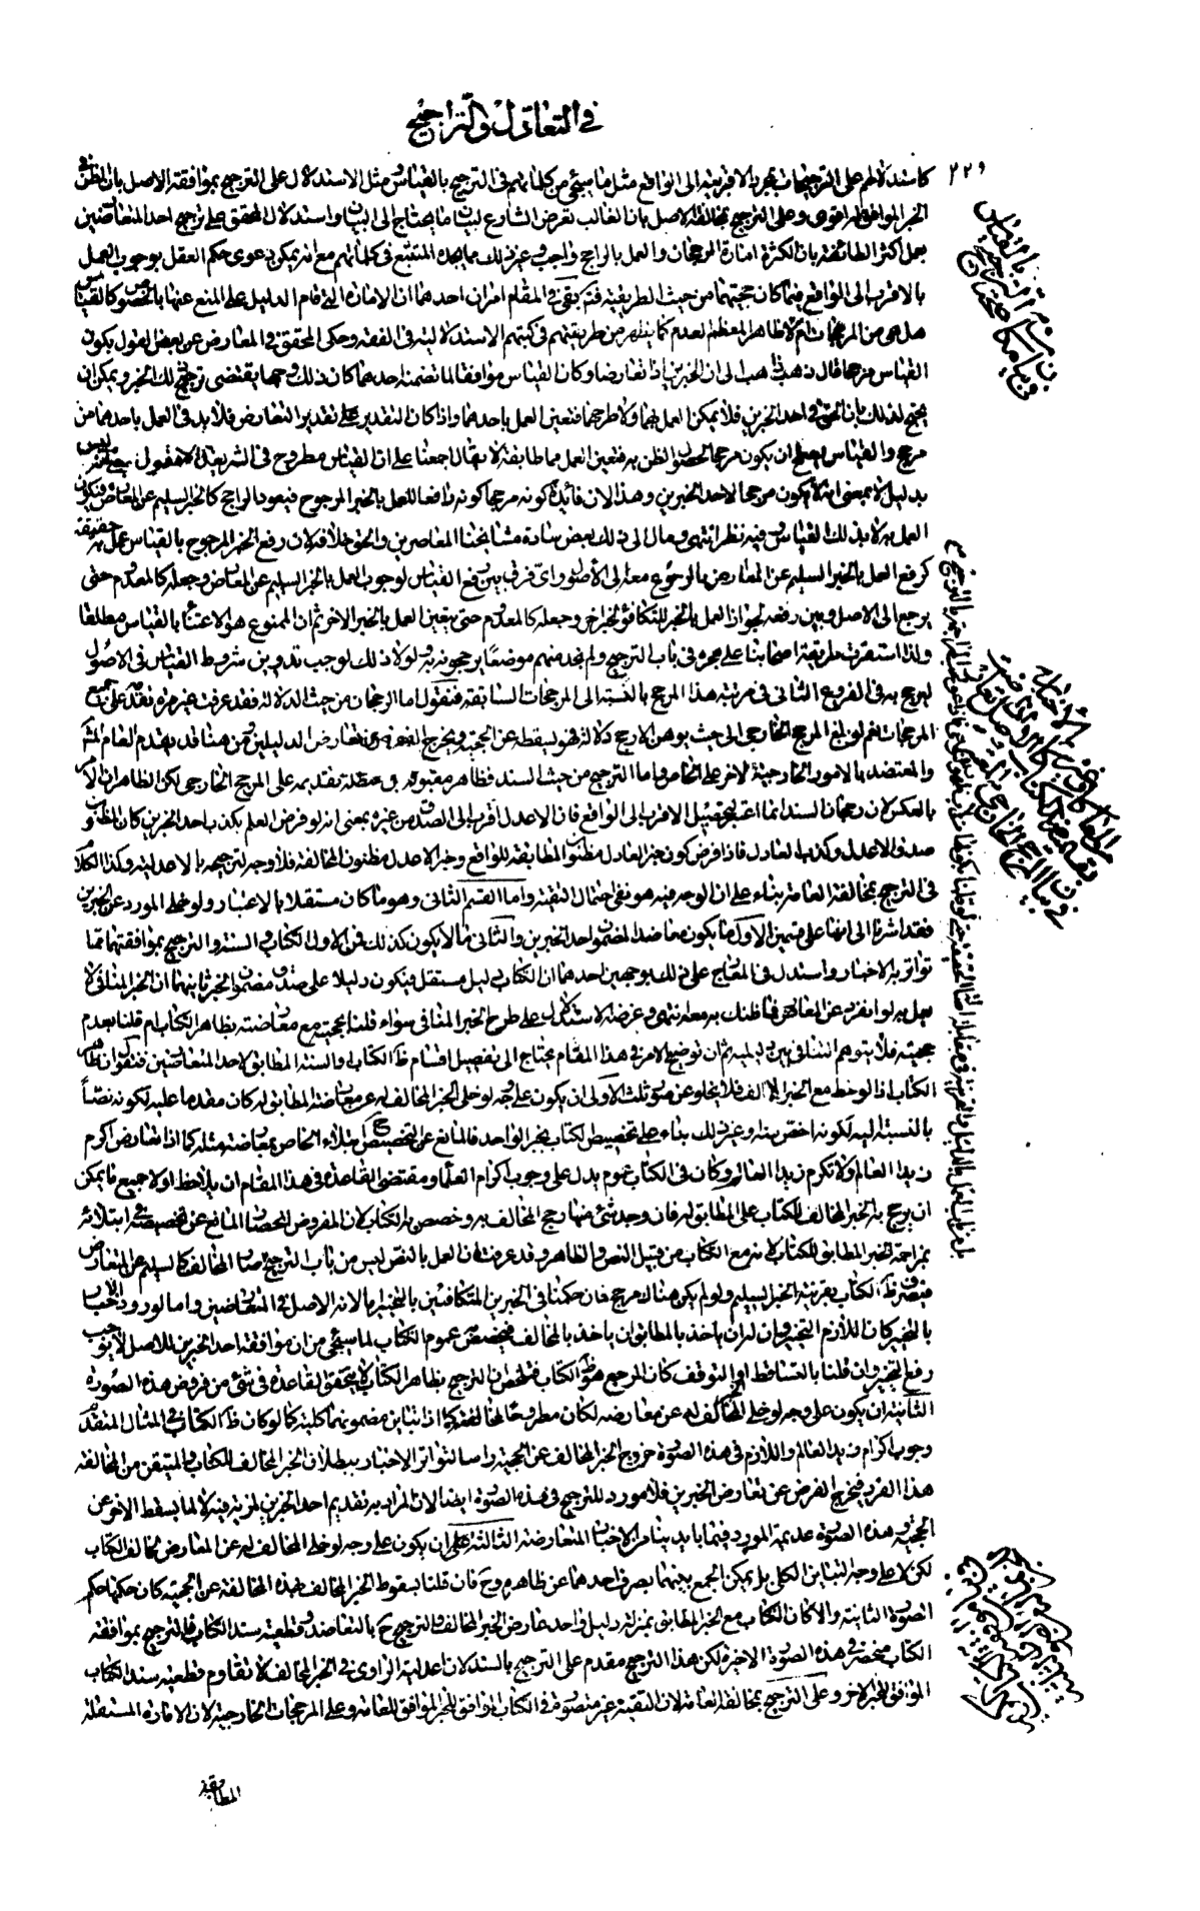 في التعادل والتراجيح
٢٢٩
كاستدلالهم على الترجيحات بمجرد الاقربية الى الواقع مثل ما سيجئ من كلماتهم في الترجيح بالقياس ومثل الاستدلال على الترجيح بموافقة الاصل بان الظن في
الخبر الموافق له اقوى وعلى الترجيح بمخالفة الاصل بان الغالب تعرض الشارع لبيان ما يحتاج الى البيان واستدلال المحقق على ترجيح احد المتعارضين
بعمل اكثر الطائفة بان الكثرة امارة الرجحان والعمل بالراجح واجب وغير ذلك مما يجده المتتبع في كلماتهم مع انه يمكن دعوى حكم العقل بوجوب العمل
بالاقرب الى الواقع فيما كان حجيتهما من حيث الطريقية فتم بقى في المقام امران احدهما ان الامارة التي قام الدليل على المنع عنها بالخصوص كالقياس
هل هي من المرجحات ام لا ظاهر المعظم العدم كما يظهر من طريقتهم في كتبهم الاستدلالية في الفقه وحكى المحقق في المعارج عن بعض القول بكون
القياس مرجحا قال ذهب ذاهب الى ان الخبرين اذا تعارضا وكان القياس موافقا لما تضمنه احدهما كان ذلك وجها يقتضى ترجيح ذلك الخبر ويمكن ان
يحتج لذلك بان الحق في احد الخبرين فلا يمكن العمل بهما ولا طرحهما فتعين العمل باحدهما واذا كان التقدير على تقدير التعارض فلا بد في العمل باحدهما من
مرجح والقياس يصلح ان يكون مرجحا لحصول الظن به فتعين العمل بما طابقه لا يقال اجمعنا على ان القياس مطروح في الشريعة لانا نقول بمعنى انه ليس
بدليل لا بمعنى انه لا يكون مرجحا لاحد الخبرين وهذا لان فائدة كونه مرجحا كونه دافعا للعمل بالخبر المرجوح فيعود الراجح كالخبر السليم عن المعارض فيكون
العمل به لا بذلك القياس وفيه نظر انتهى ومال الى ذلك بعض سادة مشايخنا المعاصرين والحق خلافه لان رفع الخبر المرجوح بالقياس عمل به حقيقة
كرفع العمل بالخبر السليم عن المعارض والرجوع معه الى الأصول واى فرق بين رفع القياس لوجوب العمل بالخبر السليم عن المعارض وجعله كالمعدوم حتى
يرجع الى الاصل وبين رفعه لجواز العمل بالخبر المتكافئ لخبر اخر وجعله كالمعدوم حتى يتعين العمل بالخبر الاخر ثم ان الممنوع هو الاعتناء بالقياس مطلقا
ولذا استقرت طريقة اصحابنا على هجره في باب الترجيح ولم نجد منهم موضعا يرجحونه به ولولا ذلك لوجب تدوين شروط القياس في الاصول
ليرجح به في الفروع الثانى في مرتبة هذا المرجح بالنسبة الى المرجحات السابقة فنقول اما الرجحان من حيث الدلالة فقد عرفت غير مرة تقدمه على جميع
المرجحات نعم لو بلغ المرجح الخارجى الى حيث يوهن الارجح دلالة فهو يسقطه عن الحجية ويخرج الفرض عن تعارض الدليلين ومن هنا قد يقدم العام المشهور
والمعتضد بالامور الخارجية الاخر على الخاص واما الترجيح من حيث السند فظاهر مقبولة بن حنظلة تقديمه على المرجح الخارجى لكن الظاهر ان الامر
بالعكس لان رجحان السند انما اعتبر لتحصيل الاقرب الى الواقع فان الاعدل اقرب الى الصدق من غيره بمعنى انه لو فرض العلم بكذب احد الخبرين كان المظنون
صدق الاعدل وكذب العادل فاذا فرض كون خبر العادل مظنون المطابقة للواقع وخبر الاعدل مظنون المخالفة فلا وجه لترجيحه بالاعدلية وكذا الكلام
في الترجيح بمخالفة العامة بناء على ان الوجه فيه هو نفى احتمال التقية واما القسم الثانى وهو ما كان مستقلا بالاعتبار ولو خلى المورد عن الخبرين
فقد اشرنا الى انها على قسمين الاول ما يكون معاضدا لمضمون احد الخبرين والثانى ما لا يكون كذلك فمن الاول الكتاب والسنة والترجيح بموافقتهما مما
تواتر به الاخبار واستدل في المعارج على ذلك بوجهين احدهما ان الكتاب دليل مستقل فيكون دليلا على صدق مضمون الخبر ثانيهما ان الخبر المنافى لا
يعمل به لو انفرد عن المعارض فما ظنك به معه انتهى وغرضه الاستدلال على طرح الخبر المنافى سواء قلنا بحجيته مع معارضته بظاهر الكتاب ام قلنا بعدم
حجيته فلا يتوهم التنافى بين دليليه ثم ان توضيح الامر في هذا المقام يحتاج الى تفصيل اقسام ظاهر الكتاب والسنة المطابق لاحد المتعارضين فنقول ان ظاهر
الكتاب اذا لوحظ مع الخبر المخالف فلا يخلو عن صور ثلث الاولى ان يكون على وجه لو خلى الخبر المخالف له عن معارضة المطابق له كان مقدما عليه لكونه نصا
بالنسبة اليه لكونه اخص منه وغير ذلك بناء على تخصيص الكتاب بخبر الواحد فالمانع عن التخصيص ح ابتلاء الخاص بمعارضة مثله كما اذا تعارض اكرم
زيدا العالم ولا تكرم زيدا العالم وكان في الكتاب عموم يدل على وجوب اكرام العلماء ومقتضى القاعدة في هذا المقام ان يلاحظ اولا جميع ما يمكن
ان يرجح به الخبر المخالف للكتاب على المطابق له فان وجد شئ منها رجح المخالف به وخصص به الكتاب لان المفروض انحصار المانع عن تخصيصه في ابتلائه
بمزاحمة الخبر المطابق للكتاب لانه مع الكتاب من قبيل النص والظاهر وقد عرفت ان العمل بالنص ليس من باب الترجيح صار المخالف كالسليم عن المعارض
فيصرف ظاهر الكتاب بقرينة الخبر السليم ولو لم يكن هناك مرجح فان حكمنا في الخبرين المتكافئين بالتخيير اما لانه الاصل في المتعارضين واما لورود الاخبار
بالتخيير كان اللازم التخيير وان له ان ياخذ بالمطابق وان ياخذ بالمخالف فيخصص به عموم الكتاب لما سيجئ من ان موافقة احد الخبرين للاصل لا يوجب
رفع التخيير وان قلنا بالتساقط او التوقف كان المرجع هو ظاهر الكتاب فتلخص ان الترجيح بظاهر الكتاب لا يتحقق القاعدة في شئ من فروض هذه الصورة
الثانية ان يكون على وجه لو خلى الخبر المخالف له عن معارضه لكان مطروحا لمخالفة الكتاب كما اذا تباين مضمونهما كلية كما لو كان ظاهر الكتاب في المثال المتقدم
وجوب اكرام زيد العالم واللازم في هذه الصورة خروج الخبر المخالف عن الحجية راسا لتواتر الاخبار ببطلان الخبر المخالف للكتاب والمتيقن من المخالفة
هذا الفرد فيخرج الفرض عن تعارض الخبرين فلا مورد للترجيح في هذه الصورة ايضا لان المراد به تقديم احد الخبرين لمزية فيه لا لما يسقط الاخر عن
الحجية وهذه الصورة عديمة المورد فيما بايدينا من الاخبار المتعارضة الثالثة ان يكون على وجه لو خلى المخالف له عن المعارض لخالف الكتاب
لكن لا على وجه التباين الكلى بل يمكن الجمع بينهما بصرف احدهما عن ظاهره وح فان قلنا بسقوط الخبر المخالف بهذه المخالفة عن الحجية كان حكمها حكم
الصورة الثانية والا كان الكتاب مع الخبر المطابق بمنزلة دليل واحد عارض الخبر المخالف والترجيح ح بالتعاضد وقطعية سند الكتاب فالترجيح بموافقة
الكتاب منحصر في هذه الصورة الاخيرة لكن هذا الترجيح مقدم على الترجيح بالسند لان اعدلية الراوى في الخبر المخالف لا تقاوم قطعية سند الكتاب
الموافق للخبر الاخر وعلى الترجيح بمخالفة العامة لان التقية غير متصورة في الكتاب الموافق للخبر الموافق للعامة وعلى المرجحات الخارجية لان الامارة المستقلة
المطابقة